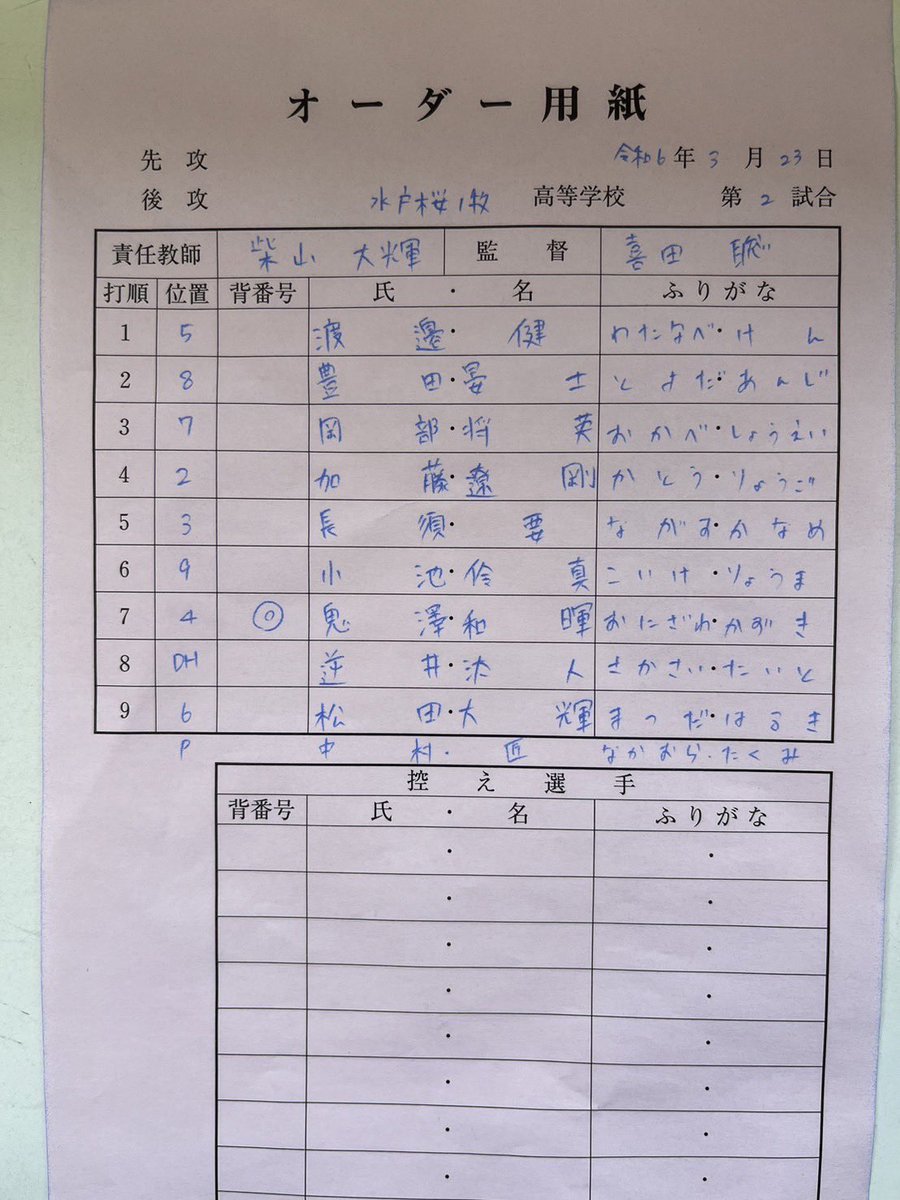 オーダー用紙
先攻 令和6年3月23日
後攻 水戸桜ノ牧 高等学校 第2試合
責任教師 柴山 大輝 監督 喜田 聡
打順 位置 背番号 氏・名 ふりがな
1 5 渡邉・健 わたなべ・けん
2 8 豊田・晏士 とよだ・あんじ
3 7 岡部・将英 おかべ・しょうえい
4 2 加藤・遼剛 かとう・りょうご
5 3 長須・要 ながす・かなめ
6 9 小池・伶真 こいけ・りょうま
7 4 ◎ 鬼澤・和暉 おにざわ・かずき
8 DH 逆井・汰人 さかさい・たいと
9 6 松田・大輝 まつだ・はるき
P 中村・匠 なかむら・たくみ
控え選手
背番号 氏・名 ふりがな
・ ・
・ ・
・ ・
・ ・
・ ・
・ ・
・ ・
・ ・